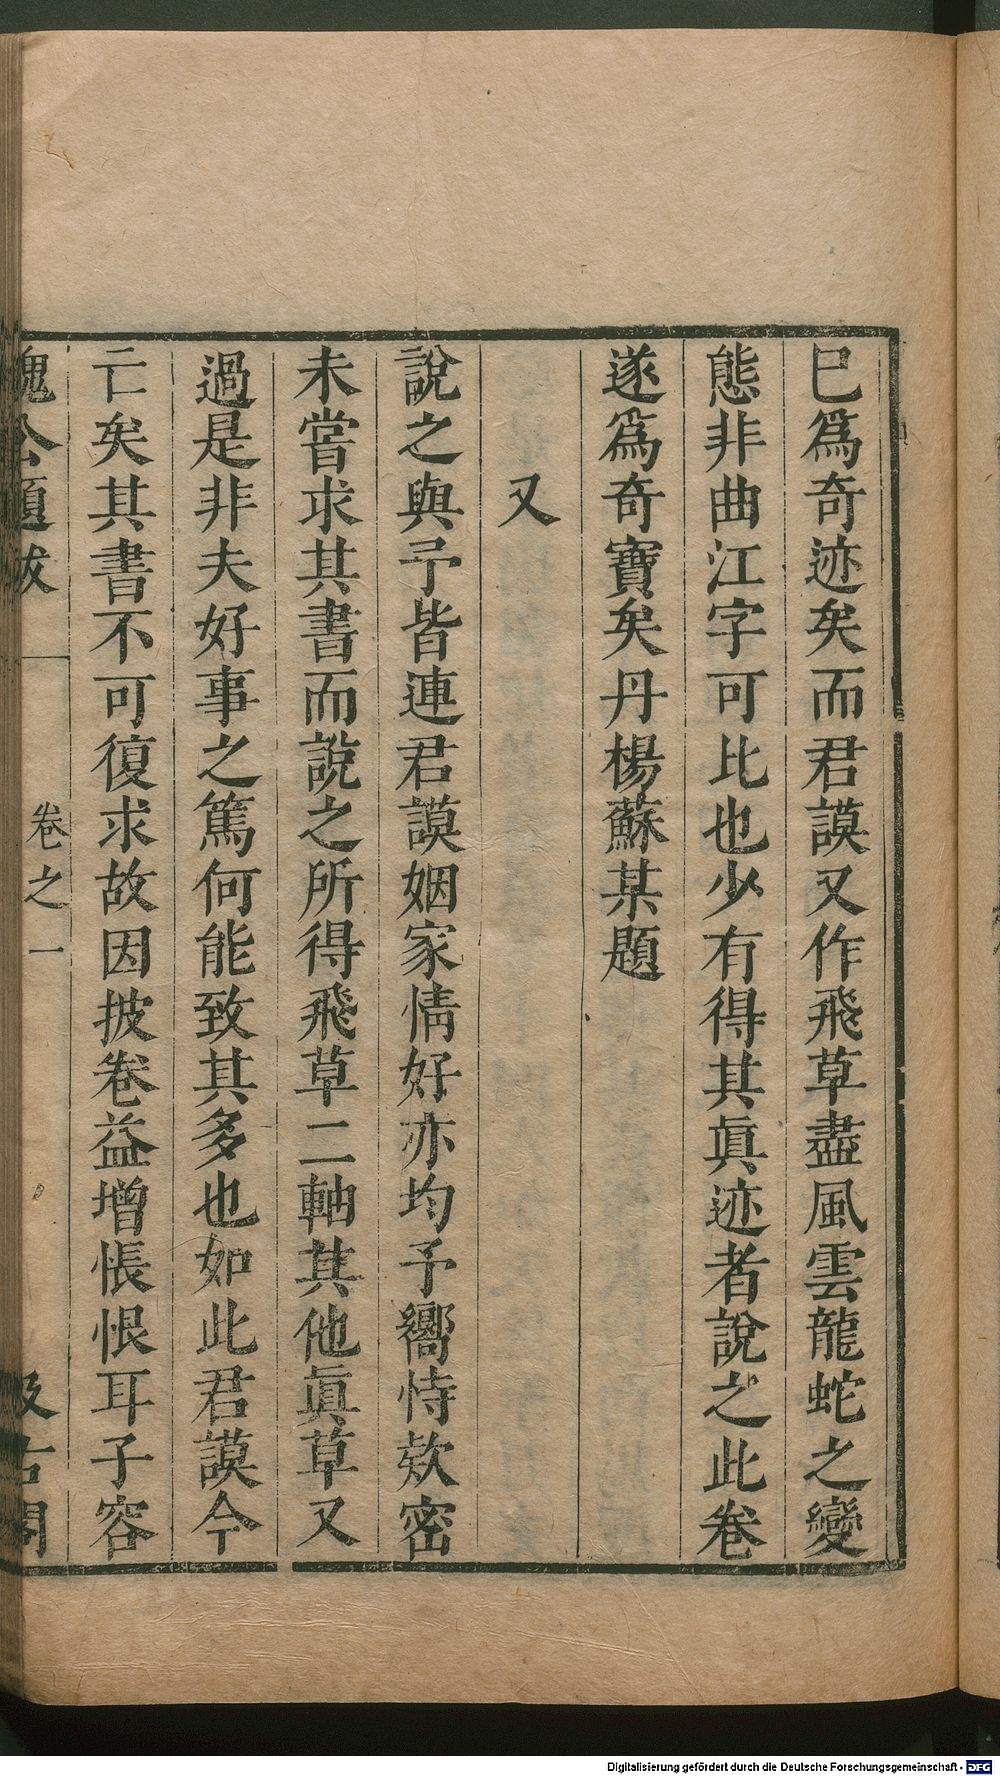 已爲奇迹矣而君謨又作飛草盡風雲龍蛇之變
態非曲江字可比也少有得其眞迹者說之此卷
遂爲奇寶矣丹楊蘇某題
又
說之與予皆連君謨姻家情好亦均予嚮恃欵密
未嘗求其書而說之所得飛草二軸其他眞草又
過是非夫好事之篤何能致其多也如此君謨今
亡矣其書不可復求故因披卷益增悵恨耳子容
魏公題跋
卷之一
汲古閣
Digitalisierung gefördert durch die Deutsche Forschungsgemeinschaft - DFG